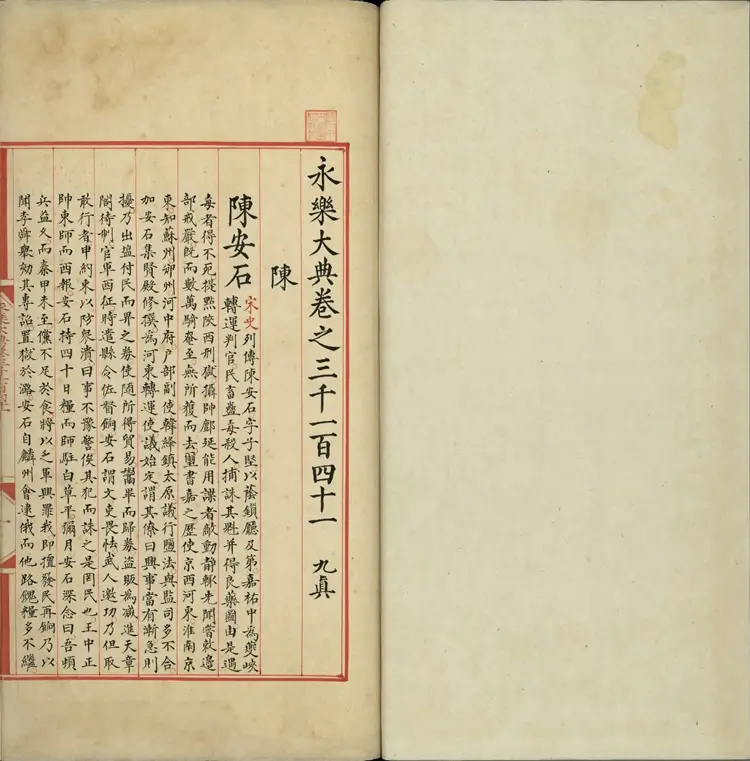 永樂大典卷之三千一百四十一 九真
陳
陳安石
宋史列傳陳安石字子堅以蔭鎖廳及第嘉祐中為夔峽
轉運判官民畜蠱毒殺人捕誅其魁并得良藥圖由是遇
毒者得不死提點陝西刑獄攝帥鄜延能用諜者敵動靜輒先聞嘗敕邊
部戒嚴既而數萬騎奄至無所獲而去璽書嘉之歷使京西河東淮南京
東知蘇州邠州河中府戶部副使韓絳鎮太原議行鹽法與監司多不合
加安石集賢殿修撰為河東轉運使議始定謂其僚曰興事當有漸急則
擾乃出鹽付民而畀之券使随所得貿易鬻畢而歸券盜販為减進天章
閣待制官軍西征時遣縣令佐督餉安石謂文吏畏怯武人邀功乃但取
敢行者申約束以防衆潰曰事不豫警俟其犯而誅之是罔民也王中正
帥東師而西報安石持四十日糧而師駐白草平彌月安石深念曰吾頓
兵益久而秦甲未至儻不足於食將以乏軍興罪我即擅發民再餉乃以
聞李舜舉劾其專詔置獄於潞安石自麟州會逮俄而他路餽糧多不繼